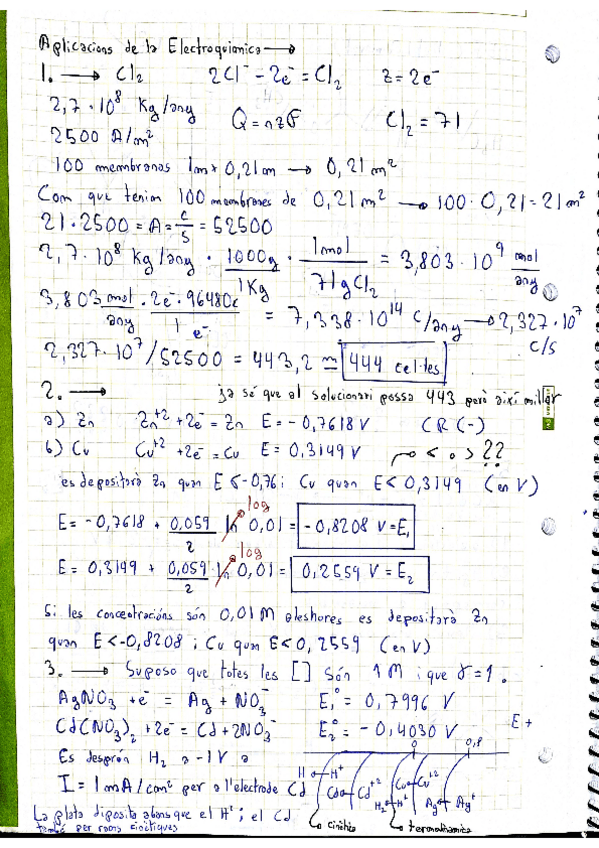 Aplicacions de la Electroquimica →
1. → Cl2 2Cl⁻ - 2e⁻ = Cl2 z = 2e⁻
2,7 · 10⁸ Kg/any Q = nzF Cl2 = 71
2500 A/m²
100 membranas 1m * 0,21m → 0,21 m²
Com que tenim 100 membranes de 0,21 m² → 100 · 0,21 = 21 m²
21 · 2500 = A = C/S = 52500
2,7 · 10⁸ Kg/any · 1000g/1Kg · 1mol/71gCl2 = 3,803 · 10⁹ mol/any
3,803 mol/any · 2e⁻ · 96480C/1 e⁻ = 7,338 · 10¹⁴ C/any → 2,327 · 10⁷ C/S
2,327 · 10⁷/52500 = 443,2 ≃ 444 cel·les
2. → ja sé que al solucionari possa 443 però així millor
a) Zn Zn⁺² + 2e⁻ = Zn E = -0,7618 V CR (-)
b) Cu Cu⁺² + 2e⁻ = Cu E = 0,3149 V < o > ??
es depositarà Zn quan E < -0,76 i Cu quan E < 0,3149 (en V)
E = -0,7618 + 0,059/2 ln log 0,01 = -0,8208 V = E1
E = 0,3149 + 0,059/2 ln log 0,01 = 0,2559 V = E2
Si les concentracións són 0,01 M aleshores es depositarà Zn
quan E < -0,8208 i Cu quan E < 0,2559 (en V)
3. → Suposo que totes les [] són 1 M i que γ = 1.
AgNO3 + e⁻ = Ag + NO3⁻ E1° = 0,7996 V
Cd(NO3)2 + 2e⁻ = Cd + 2NO3⁻ E2° = -0,4030 V E+
Es desprón H2 a -1 V a 0 0,8
I = 1 mA/cm² per a l'electrode Cd H H⁺ Cd Cd⁺² Cu Cu⁺²
H2 H⁺ Ag Ag⁺
La plata diposita abans que el H⁺ i el Cd
també per raons cinètiques cinètica termodinamica